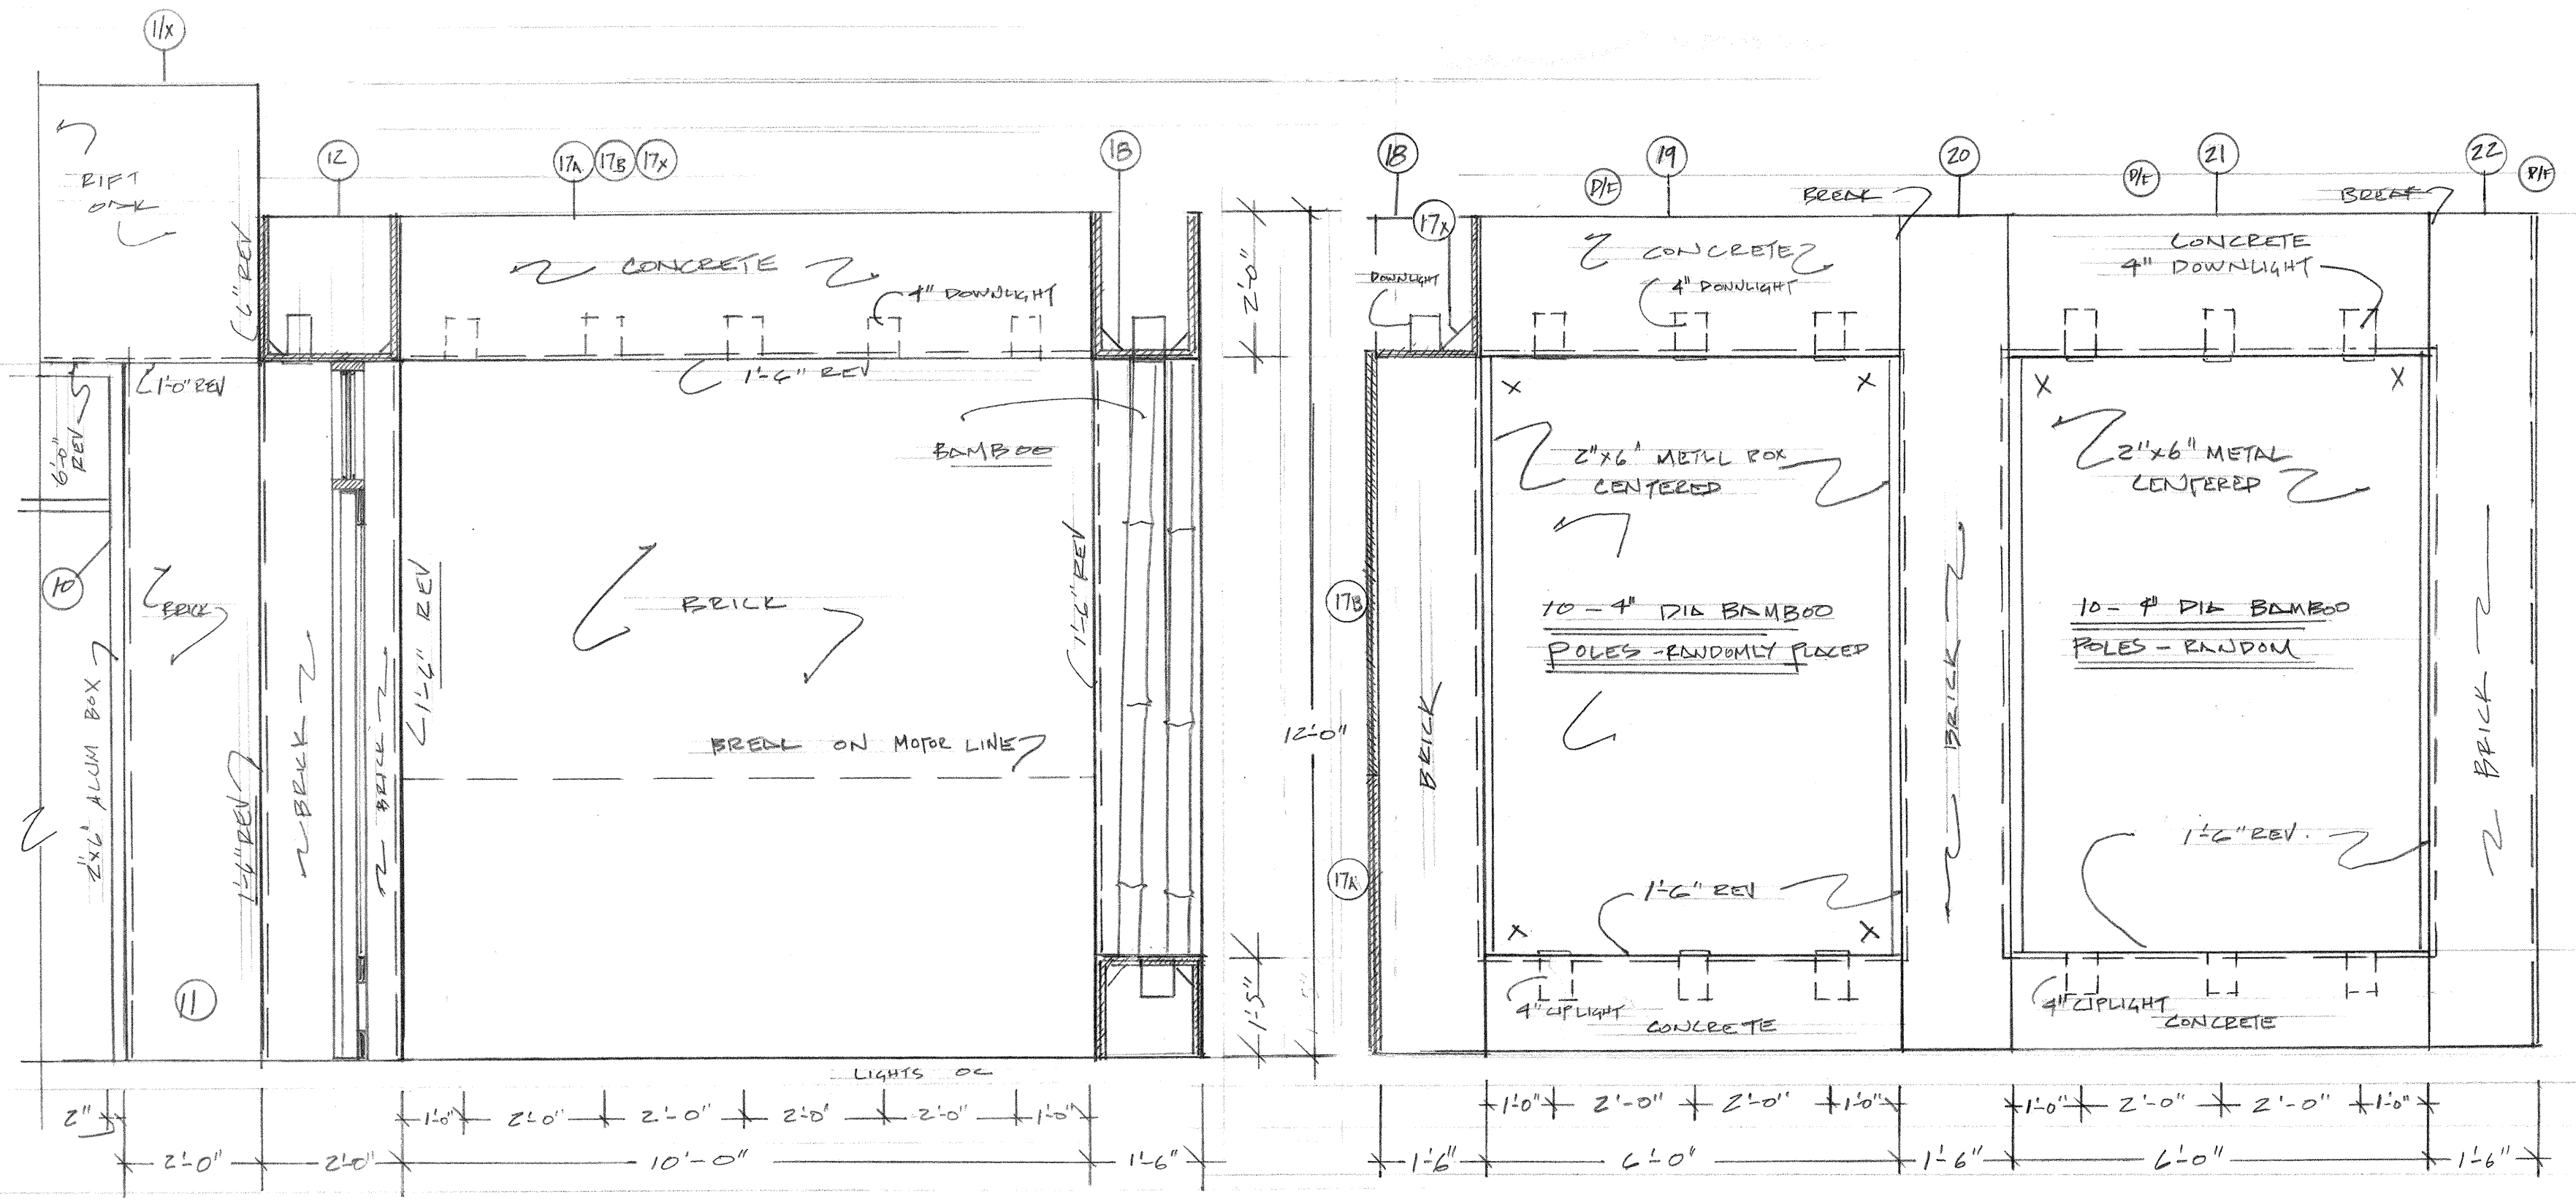 11/X
RIFT
OAK
6" REV
12
17A 17B 17X
18
CONCRETE
4" DOWNLIGHT
1'-0" REV
6'-0"
REV
1'-6" REV
BAMBOO
10
BRICK
2"X6" ALUM BOX
11
1'-6" REV
BRICK
BRICK
1'-6" REV
BRICK
BREAK ON MOTOR LINE
1'-6" REV
2'-0"
12'-0"
1'-5"
LIGHTS OC
2"
1'-0" 2'-0" 2'-0" 2'-0" 2'-0" 1'-0"
2'-0" 2'-0" 10'-0" 1'-6"
18
17X
DOWNLIGHT
D/F
19
BREAK
20
D/F
21
BREAK
22
D/F
CONCRETE
4" DOWNLIGHT
CONCRETE
4" DOWNLIGHT
X X X X
2"X6" METAL BOX
CENTERED
2"X6" METAL
CENTERED
17B
10 - 4" DIA BAMBOO
POLES - RANDOMLY PLACED
10 - 4" DIA BAMBOO
POLES - RANDOM
BRICK
BRICK
BRICK
17A
1'-6" REV
1'-6" REV.
X X
4" UPLIGHT
CONCRETE
4" UPLIGHT
CONCRETE
1'-0" 2'-0" 2'-0" 1'-0" 1'-0" 2'-0" 2'-0" 1'-0"
1'-6" 6'-0" 1'-6" 6'-0" 1'-6"